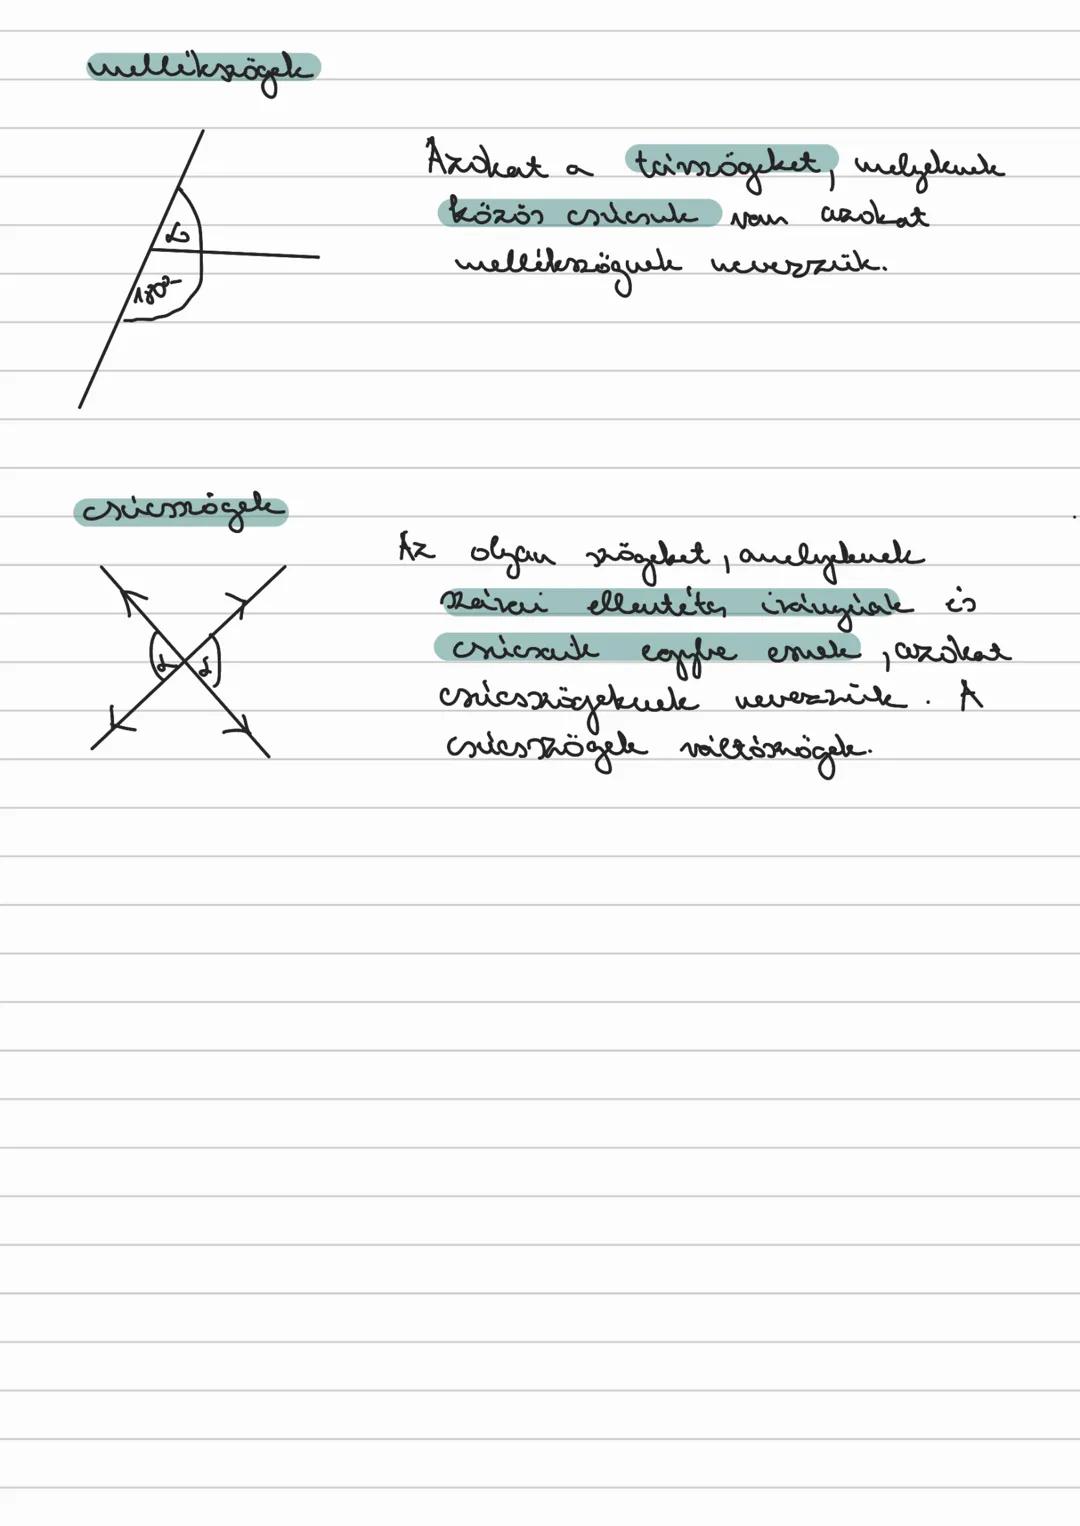 mellékszögek
Azokat a társzögeket, melyeknek
közös csúcsuk van azokat
mellékszögnek nevezzük.
α
180°-
csúcsszögek
Az olyan szögeket, amelyeknek
szárai ellentétes irányúak és
csúcsaik egybe esnek, azokat
csúcsszögeknek nevezzük. A
csúcsszögek váltószögek.
α α